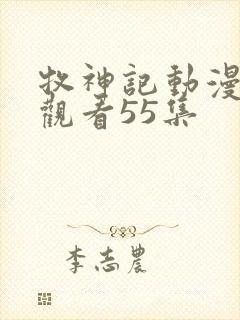 牧神記動漫
觀看55集
李志農